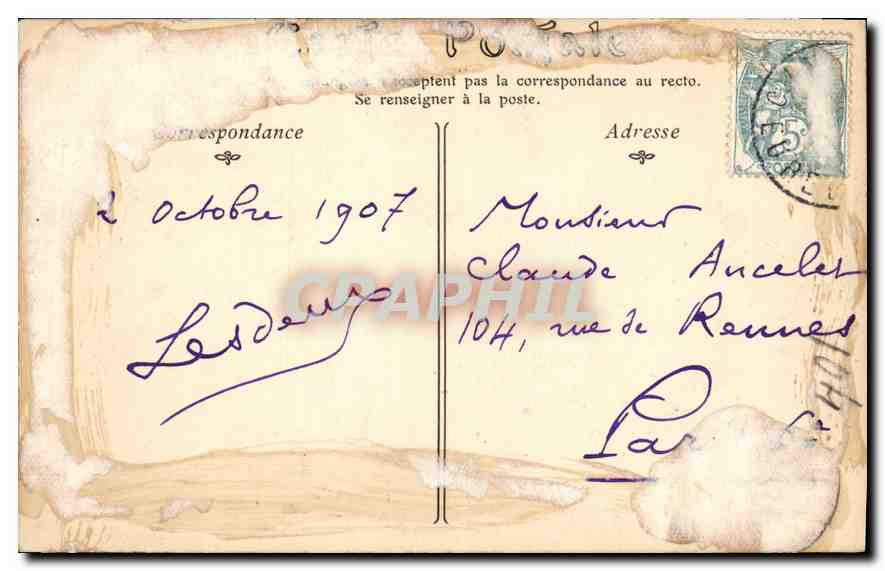 Carte Postale
acceptent pas la correspondance au recto.
Se renseigner à la poste.
Correspondance
Adresse
2 Octobre 1907
Lesdeux
Monsieur
Claude Ancelet
104, rue de Rennes
Par
CPARAMA